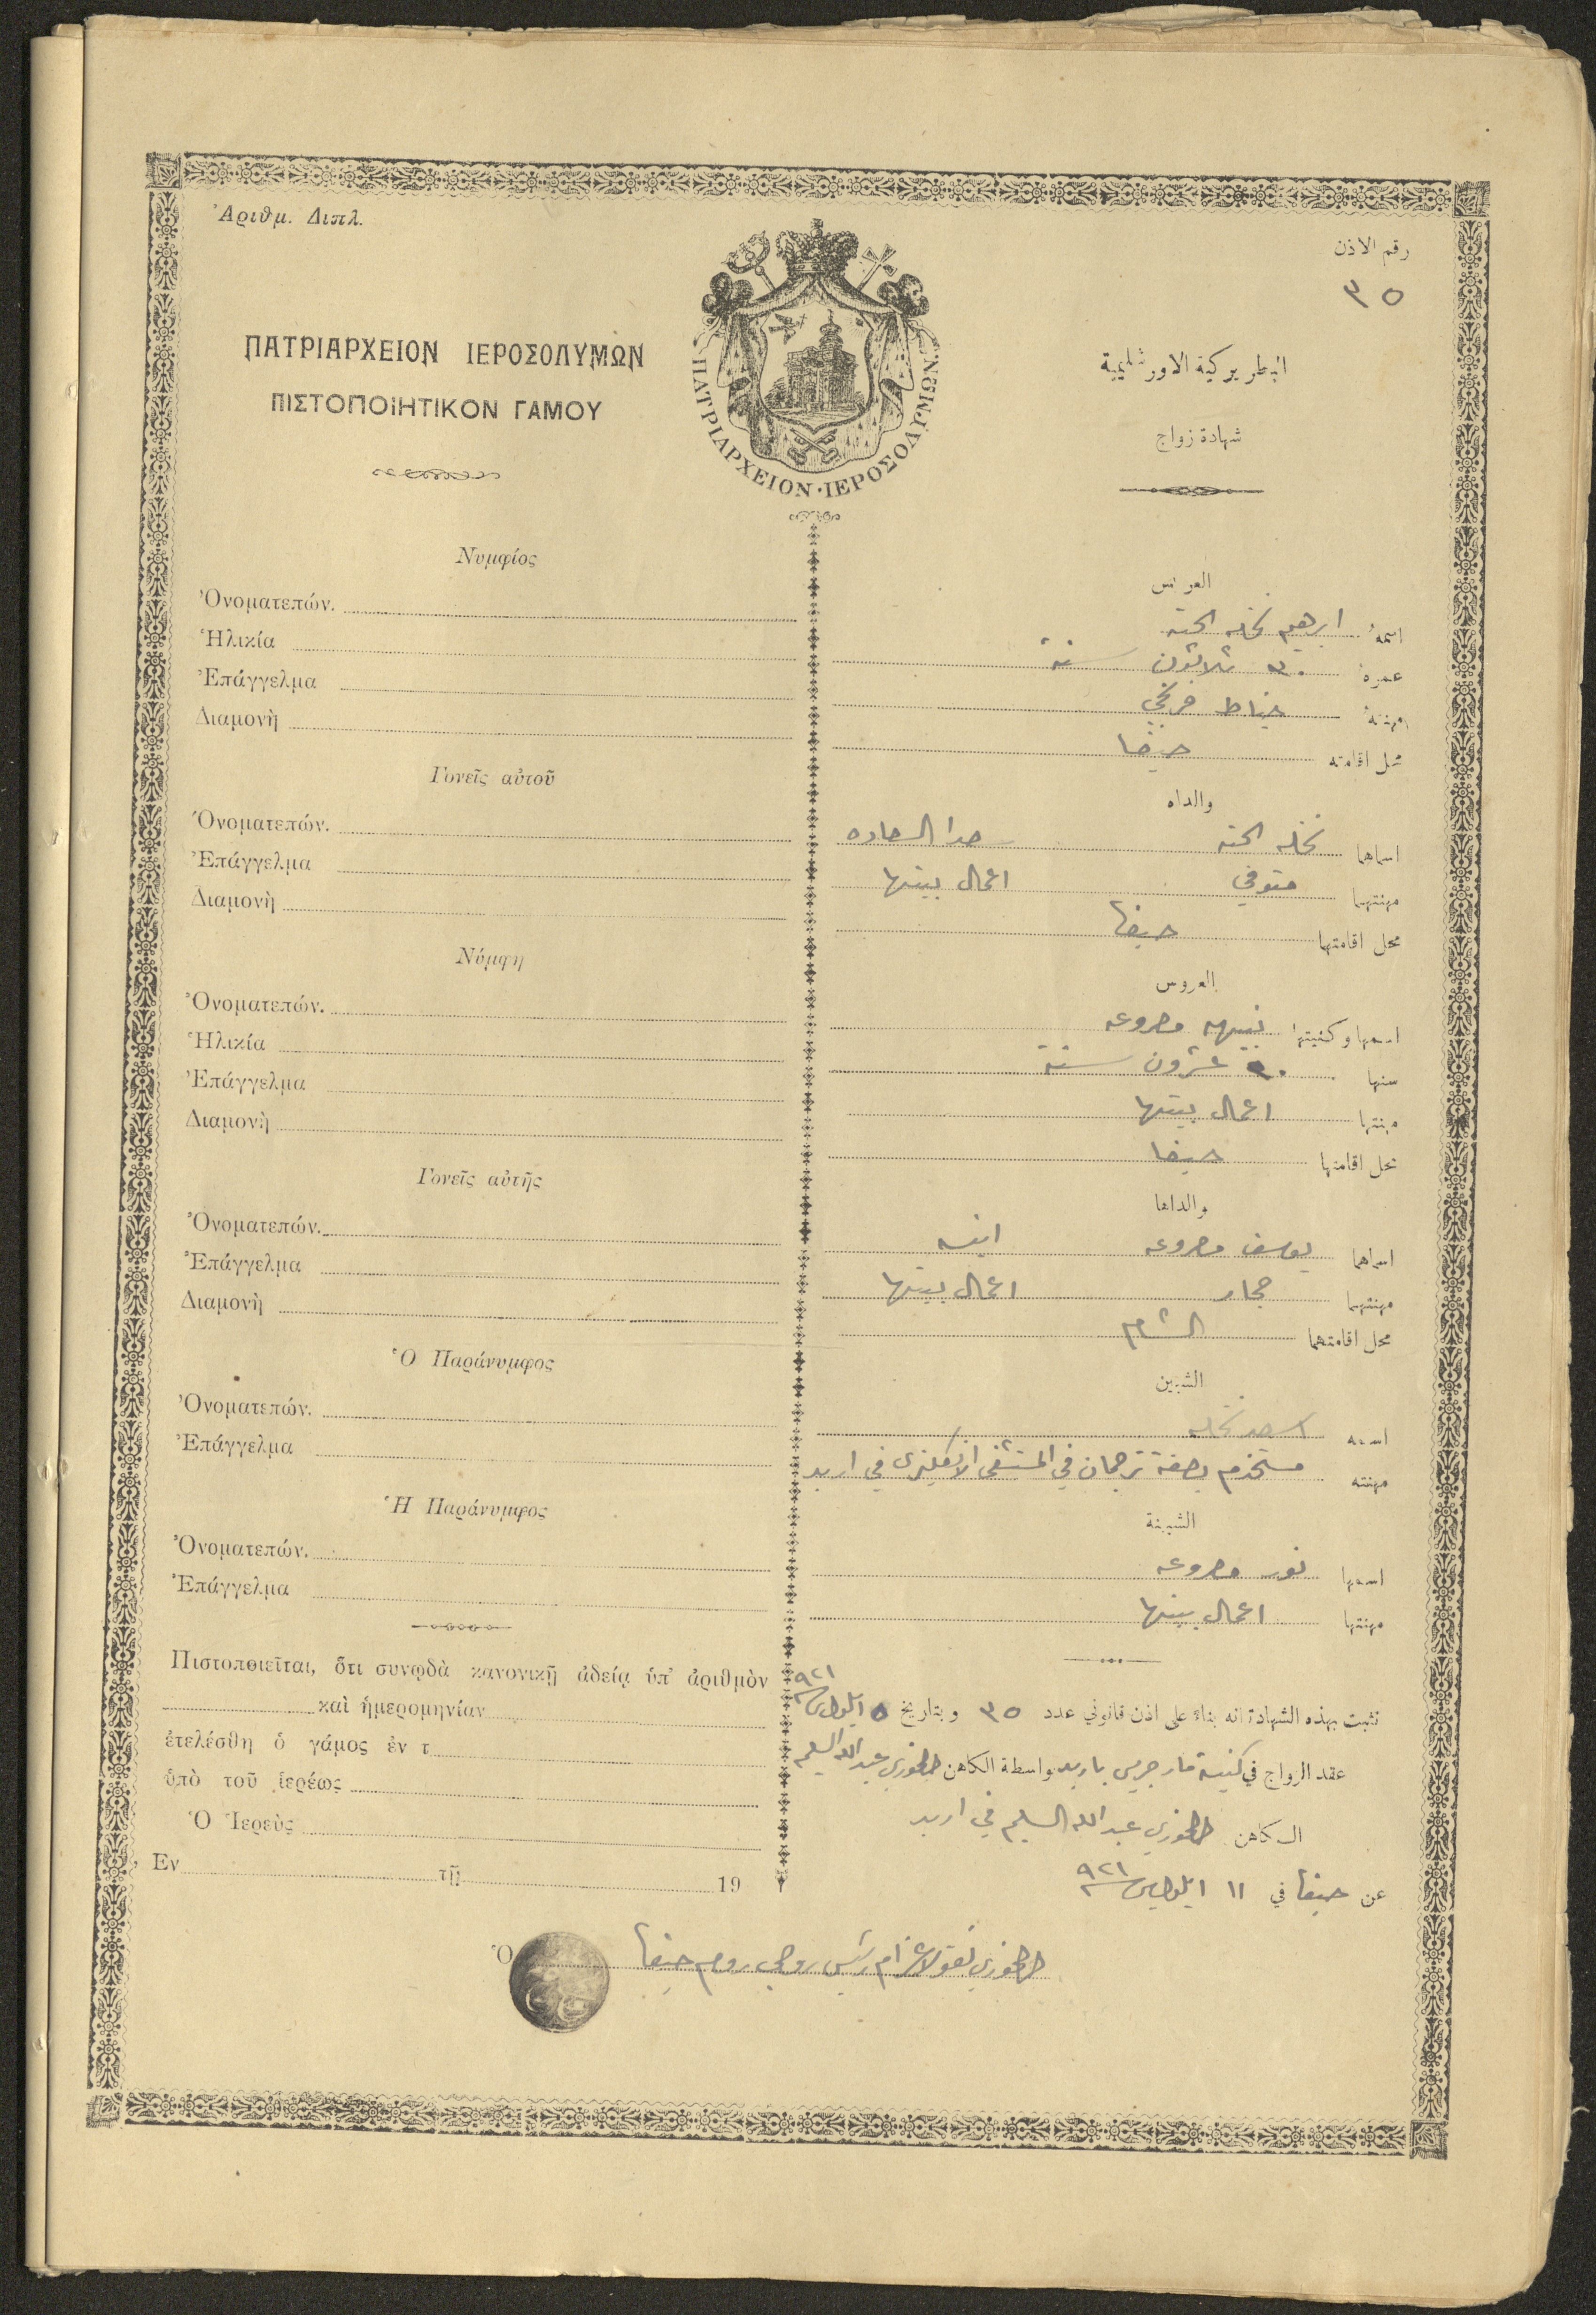 Ἀριθμ. Διπλ.
رقم الاذن
٣٥
ΠΑΤΡΙΑΡΧΕΙΟΝ ΙΕΡΟΣΟΛΥΜΩΝ
ΠΙΣΤΟΠΟΙΗΤΙΚΟΝ ΓΑΜΟΥ
ΠΑΤΡΙΑΡΧΕΙΟΝ·ΙΕΡΟΣΟΛΥΜΩΝ
البطريركية الاورشليمية
شهادة زواج
Νυμφίος
Ὀνοματεπών.
Ἡλικία
Ἐπάγγελμα
Διαμονὴ
Γονεῖς αὐτοῦ
Ὀνοματεπών.
Ἐπάγγελμα
Διαμονὴ
Νύμφη
Ὀνοματεπών.
Ἡλικία
Ἐπάγγελμα
Διαμονὴ
Γονεῖς αὐτῆς
Ὀνοματεπών.
Ἐπάγγελμα
Διαμονὴ
Ὁ Παράνυμφος
Ὀνοματεπών.
Ἐπάγγελμα
Ἡ Παράνυμφος
Ὀνοματεπών.
Ἐπάγγελμα
Πιστοποιεῖται, ὅτι συνῳδὰ κανονικῇ ἀδείᾳ ὑπ' ἀριθμὸν
καὶ ἡμερομηνίαν
ἐτελέσθη ὁ γάμος ἐν τ
ὑπὸ τοῦ ἱερέως
Ὁ Ἱερεὺς
Ἐν τῇ 19
Ὁ
العريس
اسمهُ ابرهيم نخله الحته
عمره ٣٠ ثلاثون سنة
مهنته خياط فرنجي
محل اقامته حيفا
والداه
اسماهما نخله الحته
مهنتهما متوفي اعمال بيتها
محل اقامتها حيفا
العروس
اسمها وكنيتها نبيهه مصروعه
سنها ٢٠ عشرون سنة
مهنتها اعمال بيتها
محل اقامتها حيفا
والداها
اسماهما يوسف مصروعه انيسه
مهنتهما حجار اعمال بيتها
محل اقامتهما الشام
الشبين
اسمه اسعد نخله
مهنته مستخدم بصفة ترجمان في المستشفى الانكليزى في اربد
الشبينة
اسمها نور مصروعه
مهنتها اعمال بيتها
نثبت بهذه الشهادة انه بناء على اذن قانوني عدد ٣٥ وبتاريخ ٥ ايلول سنة ٩٢١
عقد الزواج في كنيسة مار جريس باربد بواسطة الكاهن الخوري عبد الله السليم
الكاهن الخوري عبد الله السليم في اربد
عن حيفا في ١١ ايلول سنة ٩٢١
الخوري نقولا رئيس روحي روم حيفا